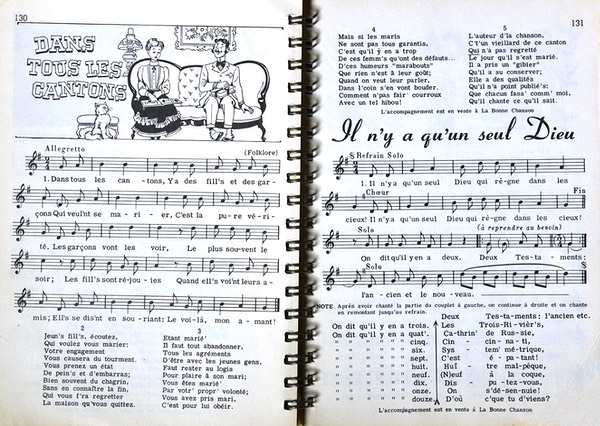 130
DANS
TOUS LES
CANTONS
Allegretto
(Folklore)
1. Dans tous les can - tons, Y a des fill's et des gar-
çons Qui veul'nt se ma - ri - er, C'est la pu - re vé - ri-
té. Les garçons vont les voir, Le plus souvent le
soir; Les fill's sont ré-jou - ies Quand ell's voi'nt leurs a-
mis; Ell's se dis'nt en sou-riant: Le voi-là, mon a-mant!
2
Jeun's fill's, écoutez,
Qui voulez vous marier:
Votre engagement
Vous causera du tourment.
Vous prenez un état
De pein's et d'embarras;
Bien souvent du chagrin.
Sans en connaître la fin.
Qui vous f'ra regretter
La maison qu'vous quittez.
3
Etant marié'
Il faut tout abandonner,
Tous les agréments
D'être avec les jeunes gens,
Faut rester au logis
Pour plaire à son mari;
Vous êtes marié'
Par votr' propr' volonté;
Vous avez pris mari,
C'est pour lui obéir.
131
4
Mais si les maris
Ne sont pas tous garantis,
C'est qu'il y en a trop
De ces femm's qu'ont des défauts...
D'ces humeurs "marabouts"
Que rien n'est à leur goût;
Quand on veut leur parler.
Dans l'coin s'en vont bouder.
Comment n'pas fair' courroux
Avec un tel hibou!
5
L'auteur d'la chanson,
C't'un vieillard de ce canton
Qui n'a pas regretté
Le jour qu'il s'est marié.
Il a pris un "gibier"
Qu'il a su conserver;
Elle a des qualités
Qu'il n'a point publié's:
Que chacun fass' comm' moi,
Qu'il chante ce qu'il sait.
L'accompagnement est en vente à La Bonne Chanson
Il n'y a qu'un seul Dieu
Refrain Solo
1. Il n'y a qu'un seul Dieu qui règne dans les
Chœur
Fin
cieux! Il n'y a qu'un seul Dieu qui rè-gne dans les cieux!
Solo
(à reprendre au besoin)
On dit qu'il y en a deux. Deux Tes-ta-ments:
Solo
l'an-cien et le nou-veau.
NOTE Après avoir chanté la partie du couplet à gauche, on continue à droite et on chante
en remontant jusqu'au refrain.
Deux Tes-ta-ments: l'ancien etc.
On dit qu'il y en a trois. Les Trois-Ri-vièr's,
On dit qu'il y en a quat'. Ca-thrin' de Rus-sie,
" " " " cinq. Cin - cin - na - ti,
" " " " six. Sys tem' mé-trique,
" " " " sept. C'est é - pa - tant!
" " " " huit. Huî - tre mal-pèque,
" " " " neuf. (N)euf à la coque,
" " " " dix. Dis - pu - tez-vous,
" " " " onze. On s'dé-sen-nuie!
" " " " douze. D'où c'que tu d'viens?
L'accompagnement est en vente à La Bonne Chanson